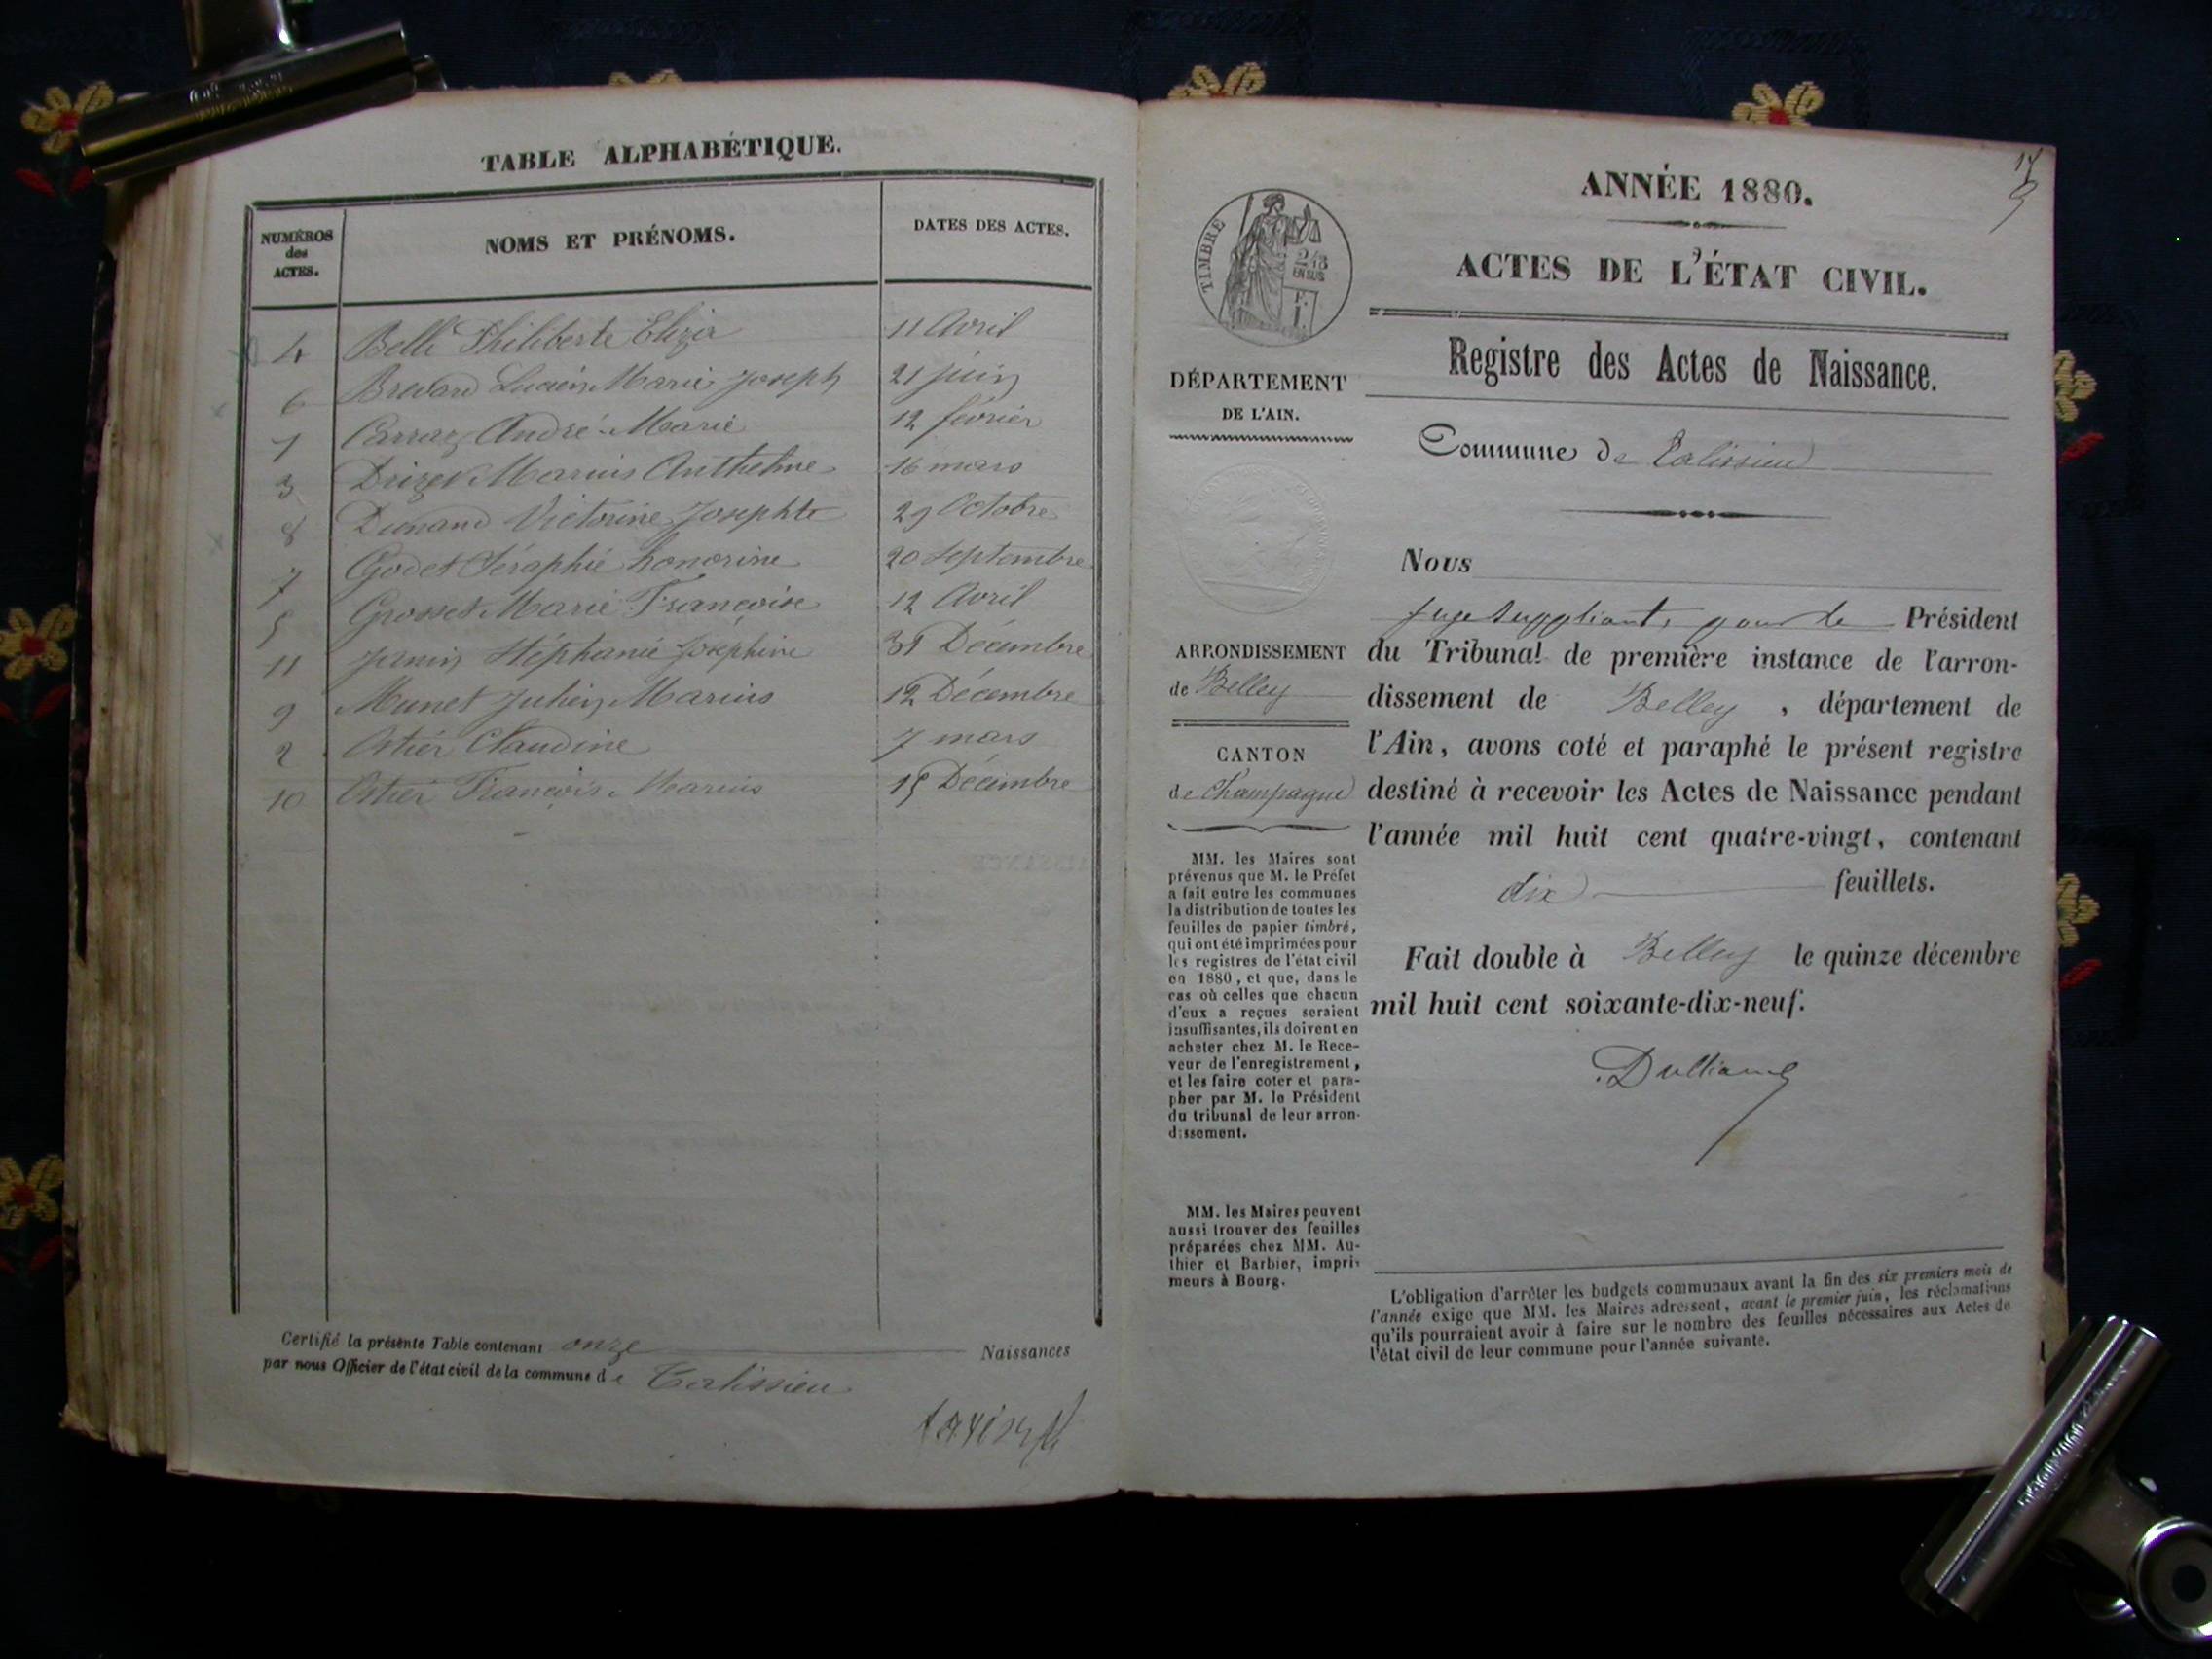 TABLE ALPHABÉTIQUE.
NUMÉROS
des
ACTES.
NOMS ET PRÉNOMS.
DATES DES ACTES.
4 Belle Philiberte Eliza 11 Avril
6 Brevard Lucien Marie Joseph 21 juin
1 Carraz André Marie 12 février
3 Drizet Marius Anthelme 16 mars
8 Dunand Victorine Josephte 29 Octobre
7 Godet Séraphie honorine 20 Septembre
5 Grosset Marie Françoise 12 Avril
11 Janin Stéphanie Joséphine 31 Décembre
9 Munet Julien Marius 12 Décembre
2 Ostier Claudine 7 mars
10 Ostier François Marius 15 Décembre
Certifié la présente Table contenant onze Naissances
par nous Officier de l'état civil de la commune de Talissieu
ANNÉE 1880.
ACTES DE L'ÉTAT CIVIL.
TIMBRE
2/10
EN SUS
F.
1.
Registre des Actes de Naissance.
DÉPARTEMENT
DE L'AIN.
Commune de Talissieu
Nous
juge suppléant, pour le Président
du Tribunal de première instance de l'arron-
dissement de Belley, département de
l'Ain, avons coté et paraphé le présent registre
destiné à recevoir les Actes de Naissance pendant
l'année mil huit cent quatre-vingt, contenant
dix feuillets.
Fait double à Belley le quinze décembre
mil huit cent soixante-dix-neuf.
ARRONDISSEMENT
de Belley
CANTON
de Champagne
MM. les Maires sont
prévenus que M. le Préfet
a fait entre les communes
la distribution de toutes les
feuilles de papier timbré,
qui ont été imprimées pour
les registres de l'état civil
en 1880, et que, dans le
cas où celles que chacun
d'eux a reçues seraient
insuffisantes, ils doivent en
acheter chez M. le Rece-
veur de l'enregistrement,
et les faire coter et para-
pher par M. le Président
du tribunal de leur arron-
dissement.
MM. les Maires peuvent
aussi trouver des feuilles
préparées chez MM. Au-
thier et Barbier, impri-
meurs à Bourg.
L'obligation d'arrêter les budgets communaux avant la fin des six premiers mois de
l'année exige que MM. les Maires adressent, avant le premier juin, les réclamations
qu'ils pourraient avoir à faire sur le nombre des feuilles nécessaires aux Actes de
l'état civil de leur commune pour l'année suivante.